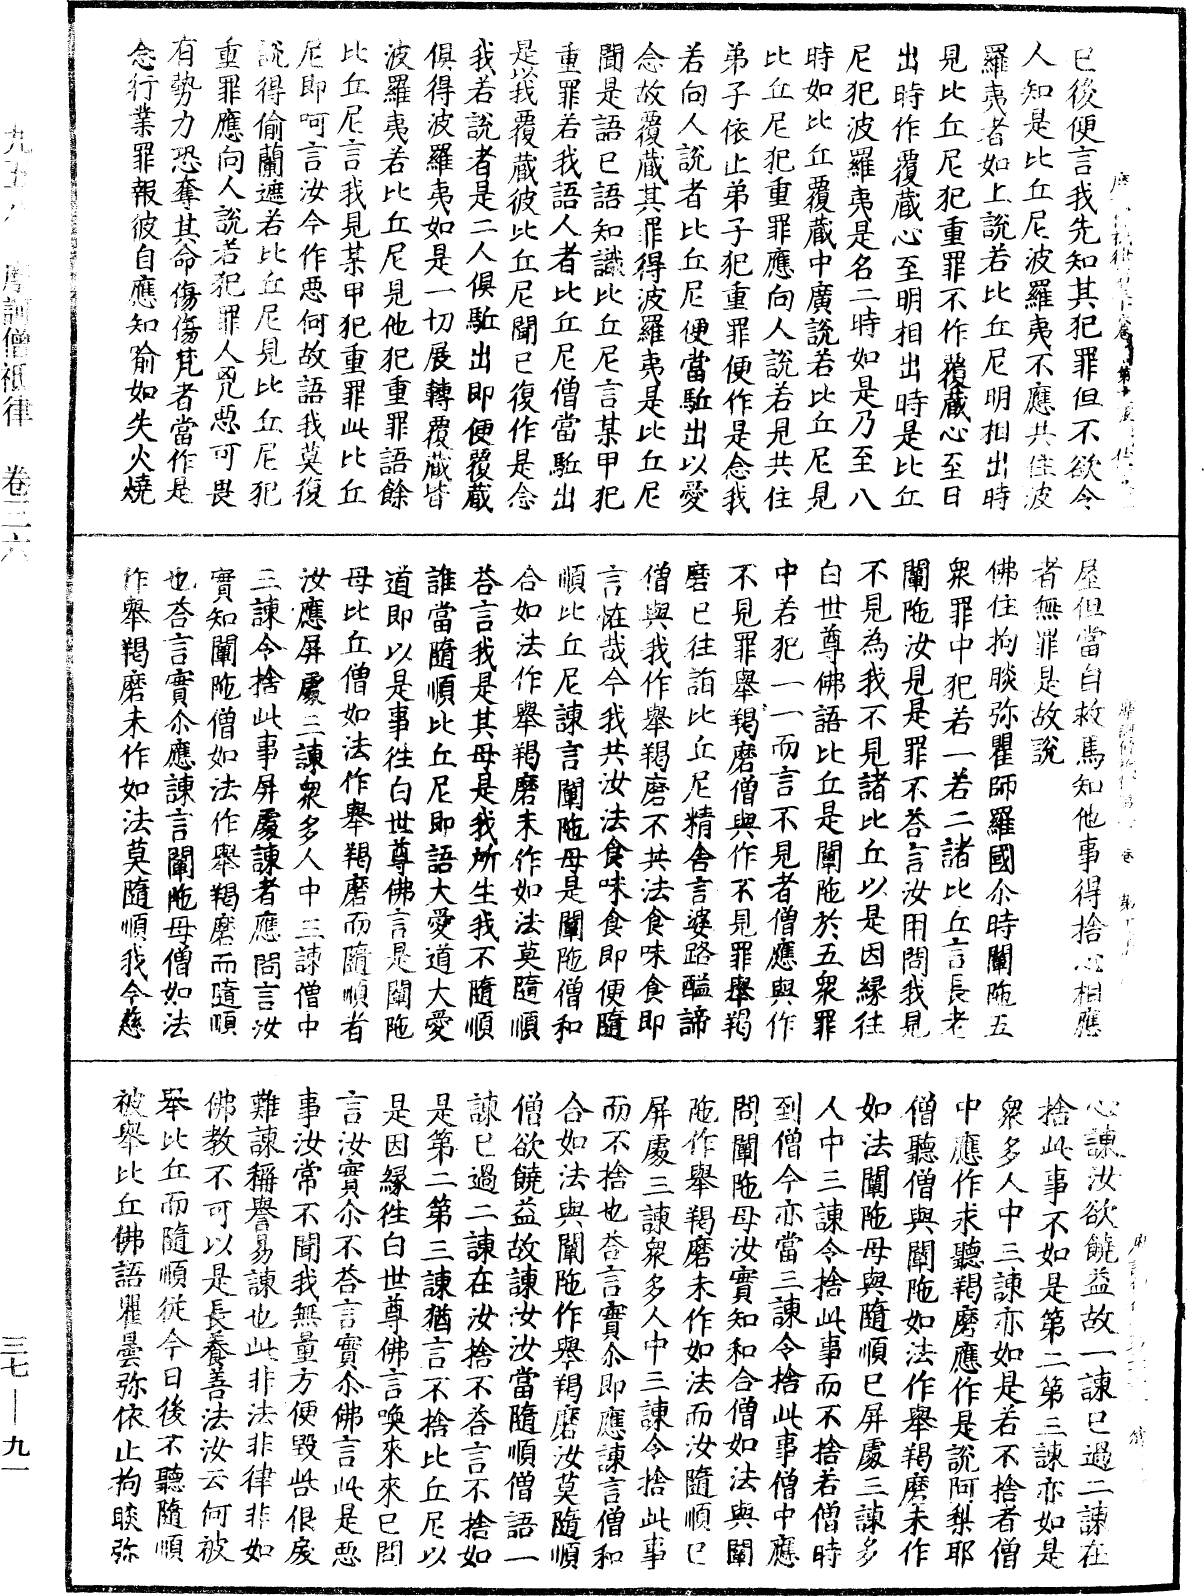 已後便言我先知其犯罪但不欲令
人知是比丘尼波羅夷不應共住波
羅夷者如上說若比丘尼明相出時
見比丘尼犯重罪不作覆藏心至日
出時作覆藏心至明相出時是比丘
尼犯波羅夷是名二時如是乃至八
時如比丘覆藏中廣說若比丘尼見
比丘尼犯重罪應向人說若見共住
弟子依止弟子犯重罪便作是念我
若向人說者比丘尼便當駈出以愛
念故覆藏其罪得波羅夷是比丘尼
聞是語已語知識比丘尼言某甲犯
重罪若我語人者比丘尼僧當駈出
是以我覆藏彼比丘尼聞已復作是念
我若說者是二人俱駈出即便覆藏
俱得波羅夷如是一切展轉覆藏皆
波羅夷若比丘尼見他犯重罪語餘
比丘尼言我見某甲犯重罪此比丘
尼即呵言汝今作惡何故語我莫復
說得偷蘭遮若比丘尼見比丘尼犯
重罪應向人說若犯罪人兇惡可畏
有勢力恐奪其命傷傷梵者當作是
念行業罪報彼自應知喻如失火燒
屋但當自救焉知他事得捨心相應
者無罪是故說
佛住拘睒弥瞿師羅國尒時闡陁五
衆罪中犯若一若二諸比丘言長老
闡陁汝見是罪不荅言汝用問我見
不見為我不見諸比丘以是因緣往
白世尊佛語比丘是闡陁於五衆罪
中若犯一一而言不見者僧應與作
不見罪舉羯磨僧與作不見罪舉羯
磨已往詣比丘尼精舍言婆路醯諦
僧與我作舉羯磨不共法食味食即
言恠哉今我共汝法食味食即便隨
順比丘尼諫言闡陁母是闡陁僧和
合如法作舉羯磨未作如法莫隨順
荅言我是其母是我所生我不隨順
誰當隨順比丘尼即語大愛道大愛
道即以是事往白世尊佛言是闡陁
母比丘僧如法作舉羯磨而隨順者
汝應屏處三諫衆多人中三諫僧中
三諫令捨此事屏處諫者應問言汝
實知闡陁僧如法作舉羯磨而隨順
也荅言實尒應諫言闡陁母僧如法
作舉羯磨未作如法莫隨順我今慈
心諫汝欲饒益故一諫已過二諫在
捨此事不如是第二第三諫亦如是
衆多人中三諫亦如是若不捨者僧
中應作求聽羯磨應作是說阿梨耶
僧聽僧與闡陁如法作舉羯磨未作
如法闡陁母與隨順已屏處三諫多
人中三諫令捨此事而不捨若僧時
到僧今亦當三諫令捨此事僧中應
問闡陁母汝實知和合僧如法與闡
陁作舉羯磨未作如法而汝隨順已
屏處三諫衆多人中三諫令捨此事
而不捨也荅言實尒即應諫言僧和
合如法與闡陁作舉羯磨汝莫隨順
僧欲饒益故諫汝汝當隨順僧語一
諫已過二諫在汝捨不荅言不捨如
是第二第三諫猶言不捨比丘尼以
是因緣往白世尊佛言喚來來已問
言汝實尒不荅言實尒佛言此是惡
事汝常不聞我無量方便毀呰佷戾
難諫稱譽易諫也此非法非律非如
佛教不可以是長養善法汝云何被
舉比丘而隨順從今日後不聽隨順
被舉比丘佛語瞿曇弥依止拘睒弥
九五八 摩訶僧祇律 卷三六
三七—九一